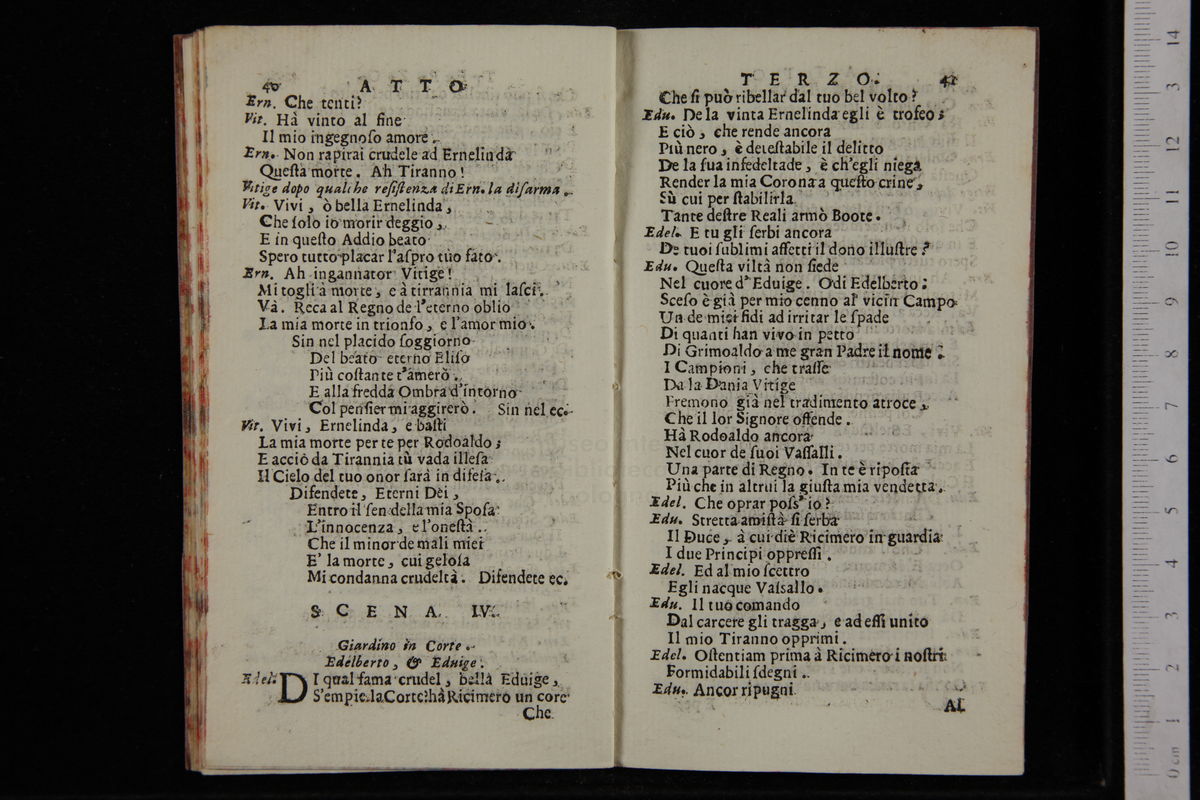 40 ATTO
Ern. Che tenti?
Vit. Hà vinto al fine
Il mio ingegnoſo amore.
Ern. Non rapirai crudele ad Ernelinda
Queſta morte. Ah Tiranno!
Vitige dopo qualche reſiſtenza di Ern. la diſarma.
Vit. Vivi, ò bella Ernelinda,
Che ſolo io morir deggio,
E in queſto Addio beato
Spero tutto placar l'aſpro tuo fato.
Ern. Ah ingannator Vitige!
Mi togli à morte, e à tirrannia mi laſci.
Và. Reca al Regno de l'eterno oblio
La mia morte in trionfo, e l'amor mio.
Sin nel placido ſoggiorno
Del beato eterno Eliſo
Più coſtante t'amerò.
E alla fredda Ombra d'intorno
Col penſier mi aggirerò. Sin nel ec.
Vit. Vivi, Ernelinda, e baſti
La mia morte per te per Rodoaldo;
E acciò da Tirannia tù vada illeſa
Il Cielo del tuo onor ſarà in difeſa.
Difendete, Eterni Dèi,
Entro il ſen della mia Spoſa
L'innocenza, e l'oneſtà.
Che il minor de mali miei
E' la morte, cui geloſa
Mi condanna crudeltà. Difendete ec.
SCENA IV.
Giardino in Corte.
Edelberto, & Eduige.
Edel. DI qual fama crudel, bella Eduige,
S'empie la Corte! hà Ricimero un core
Che
TERZO. 41
Che ſi può ribellar dal tuo bel volto?
Edu. De la vinta Ernelinda egli è trofeo;
E ciò, che rende ancora
Più nero, è deteſtabile il delitto
De la ſua infedeltade, è ch'egli niega
Render la mia Corona a queſto crine,
Sù cui per ſtabilirla
Tante deſtre Reali armò Boote.
Edel. E tu gli ſerbi ancora
De tuoi ſublimi affetti il dono illuſtre?
Edu. Queſta viltà non ſiede
Nel cuore d'Eduige. Odi Edelberto:
Sceſo è già per mio cenno al vicin Campo
Un de miei fidi ad irritar le ſpade
Di quanti han vivo in petto
Di Grimoaldo a me gran Padre il nome.
I Campioni, che traſſe
Da la Dania Vitige
Fremono già nel tradimento atroce,
Che il lor Signore offende.
Hà Rodoaldo ancora
Nel cuor de ſuoi Vaſſalli.
Una parte di Regno. In te è ripoſta
Più che in altrui la giuſta mia vendetta.
Edel. Che oprar poſs'io?
Edu. Stretta amiſtà ſi ſerba
Il Duce, à cui diè Ricimero in guardia
I due Principi oppreſſi.
Edel. Ed al mio ſcettro
Egli nacque Vaſsallo.
Edu. Il tuo comando
Dal carcere gli tragga, e ad eſſi unito
Il mio Tiranno opprimi.
Edel. Oſtentiam prima à Ricimero i noſtri
Formidabili ſdegni.
Edu. Ancor ripugni
Al